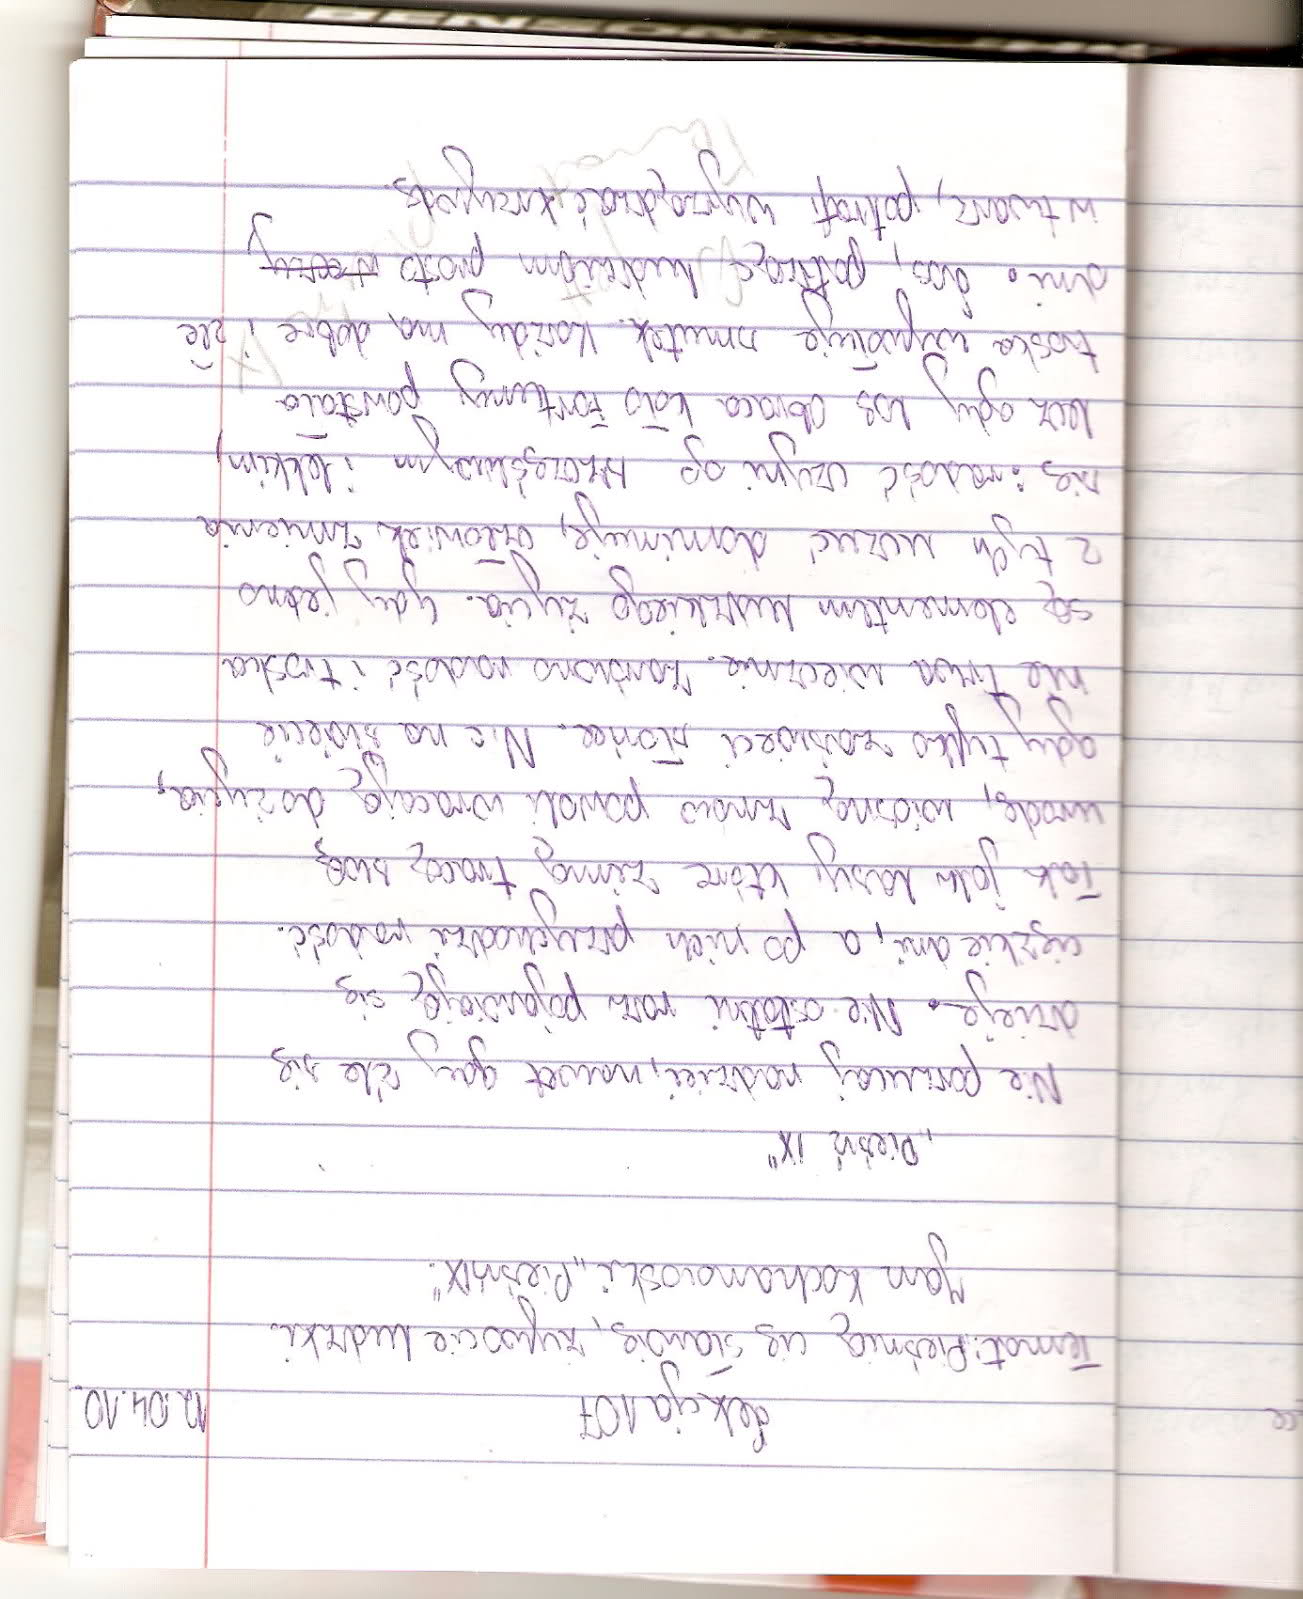 Lekcja 107 12.04.10.
Temat: Pieśnią cię sławię, żywocie ludzki.
Jan Kochanowski „Pieśń IX".
„Pieśń IX"
Nie porzucaj nadziei, nawet gdy źle się
dzieje. Nie ostatni raz pojawiają się
ciężkie dni, a po nich przychodzi radość.
Tak jak lasy, które zimą tracą swą
urodę, wiosną znowu powoli wracają do życia,
gdy tylko zaświeci słońce. Nic na świecie
nie trwa wiecznie. Zarówno radość i troska
są elementem ludzkiego życia. Gdy jedno
z tych uczuć dominuje, człowiek zmienia
się: radość czyni go szczęśliwym i lekkim,
lecz gdy los obraca koło Fortuny powstała
troska wywołuje smutek. Każdy ma dobre i złe
dni. Los, patrząc ludziom prosto w oczy
w twarz, potrafi wyrządzać krzywdę.